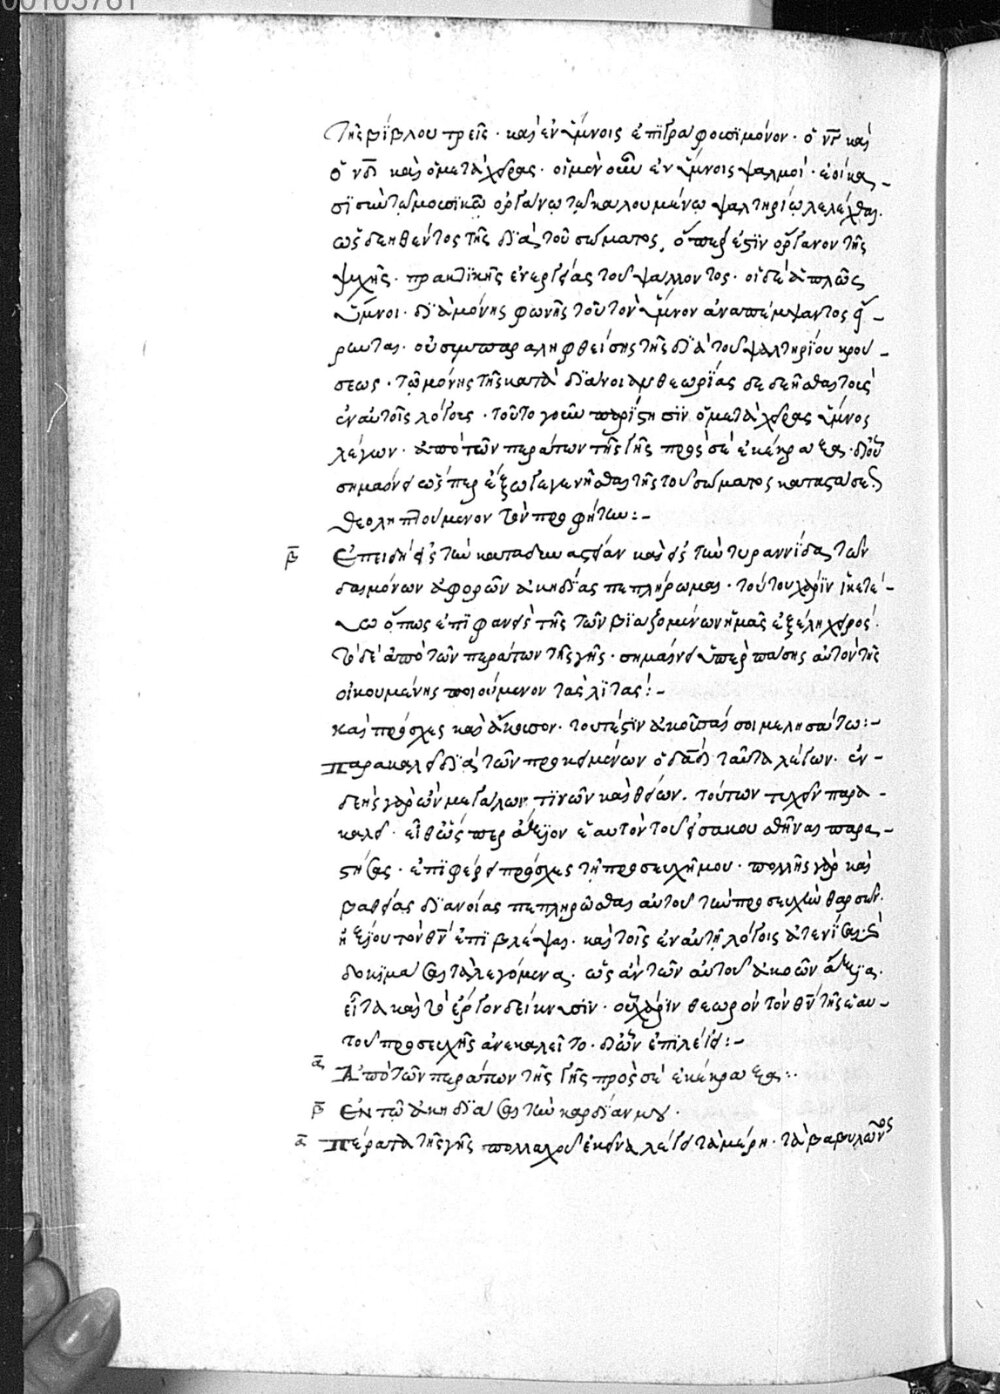 00105781
τῆς βίβλου τρεῖς· καὶ ἐν ὕμνοις ἐπιγράφουσι μόνον· ὁ νγ καὶ
ὁ νδ καὶ ὁ μετὰ χεῖρας· οἱ μὲν οὖν ἐν ὕμνοις ψαλμοὶ· ἐοίκα-
σι σὺν τῷ μουσικῷ ὀργάνῳ τῷ καλουμένῳ ψαλτηρίῳ λελέχθαι·
ὡς δεηθέντος τῆς διὰ τοῦ σώματος, ὅπερ ἐστὶν ὄργανον τῆς
ψυχῆς· πρακτικῆς ἐνεργείας τοῦ ψάλλοντος· οἱ δὲ ἁπλῶς
ὕμνοι· διὰ μόνης φωνῆς τοῦ τὸν ὕμνον ἀναπέμψαντος
οὐ συμπαραληφθείσης τῆς διὰ τοῦ ψαλτηρίου κρού-
σεως· τῷ μόνης τῆς κατὰ διάνοιαν θεωρίας δεδεῆσθαι τοῖς
ἐν αὐτοῖς λόγοις· τοῦτο γοῦν παρίστησιν ὁ μετὰ χεῖρας ὕμνος
λέγων· ἀπὸ τῶν περάτων τῆς γῆς πρὸς σὲ ἐκέκραξα· δι' οὗ
σημαίνει ὥσπερ ἔξω γεγενῆσθαι τῆς τοῦ σώματος καταστάσεως
θεοληπτούμενον τὸν προφήτην:-
β Ἐπειδὴ εἰς τὴν κατὰ καὶ εἰς τὴν τυραννίδα τῶν
δαιμόνων ἀφορῶν ἀκηδίας πεπλήρωμαι· τούτου χάριν ἱκετεύ-
ω ὅπως ἐπιφανεὶς τῆς τῶν βιαζομένων ἡμᾶς ἐξέλῃ χειρός·
τὸ δὲ ἀπὸ τῶν περάτων τῆς γῆς· σημαίνει ὑπὲρ πάσης αὐτὸν τῆς
οἰκουμένης ποιούμενον τὰς λιτάς:-
καὶ πρόσχες καὶ ἄκουσον· τουτέστιν ἀκοῦσαί σοι μελησάτω:-
Παρακαλεῖ διὰ τῶν προκειμένων ὁ δαδ ταῦτα λέγων· ἐν-
δεὴς γὰρ ὢν μεγάλων τινῶν καὶ θείων· τούτων τυχεῖν παρα-
καλεῖ· εἶθ' ὥσπερ ἄξιον ἑαυτὸν τοῦ εἰσακουσθῆναι παρα-
στήσας· ἐπιφέρει πρόσχες τῇ προσευχῇ μου· πολλῆς γὰρ καὶ
βαθείας διανοίας πεπληρῶσθαι αὐτοῦ τὴν προσευχὴν θαρσῶν·
ἠξίου τὸν θν ἐπιβλέψαι· καὶ τοῖς ἐν αὐτῇ λόγοις ἀτενίσαι· καὶ
δοκιμάσαι τὰ λεγόμενα· ὡς ἂν τῶν αὐτοῦ ἀκοῶν ἄξια·
εἶτα καὶ τὸ ἔργον δείκνυσιν· οὗ χάριν θεωρὸν τὸν θν τῆς ἑαυ-
τοῦ προσευχῆς ἀνεκαλεῖτο· δι' ὧν ἐπιλέγει:-
α Ἀπὸ τῶν περάτων τῆς γῆς πρὸς σὲ ἐκέκραξα:·
β Ἐν τῷ ἀκηδιάσαι τὴν καρδίαν μου·
α Πέρατα τῆς γῆς πολλαχοῦ ἐκεῖνα λέγει τὰ μέρη· τὰ βαβυλῶνος